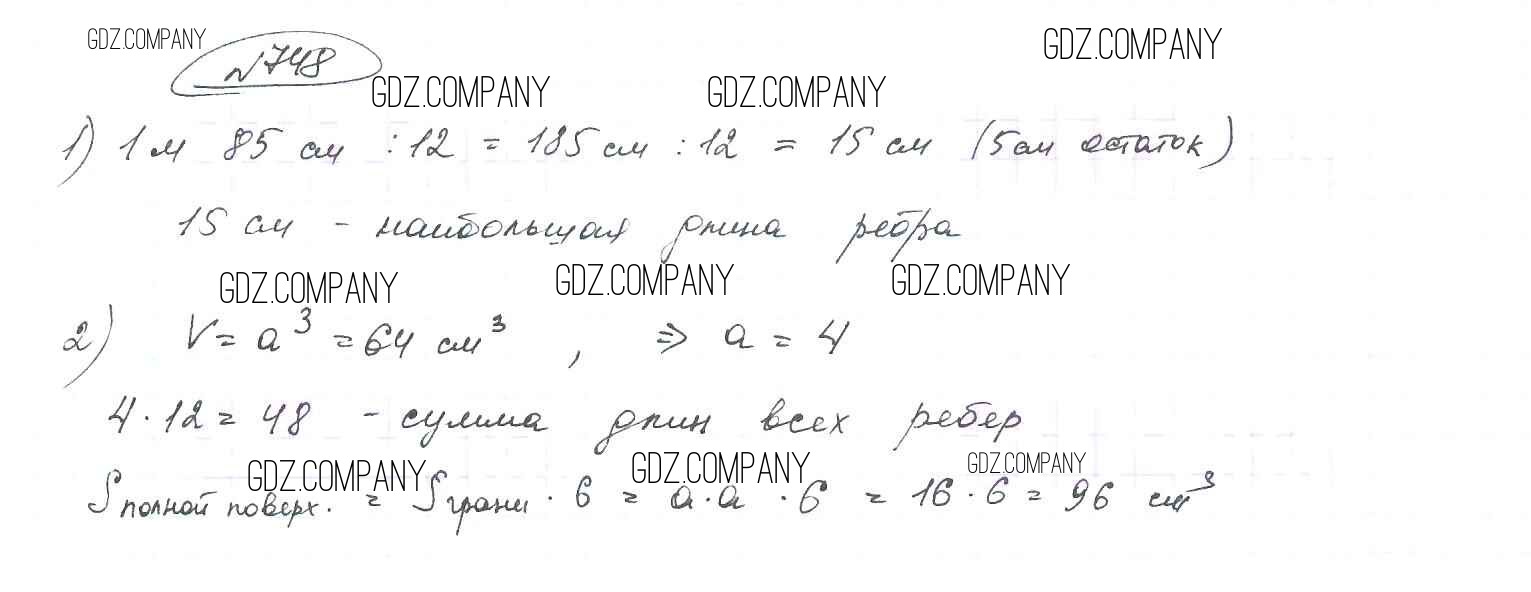 GDZ.COMPANY
№748
GDZ.COMPANY
GDZ.COMPANY GDZ.COMPANY
1) 1 м 85 см : 12 = 185 см : 12 = 15 см (5 см остаток)
15 см - наибольшая длина ребра
GDZ.COMPANY GDZ.COMPANY GDZ.COMPANY
2) V = a³ = 64 см³, ⇒ a = 4
4 · 12 = 48 - сумма длин всех ребер
GDZ.COMPANY GDZ.COMPANY GDZ.COMPANY
S полной поверх. = S грани · 6 = a · a · 6 = 16 · 6 = 96 см³